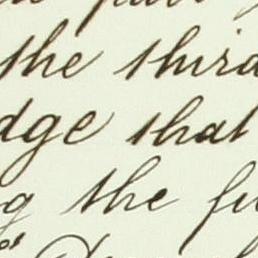 the third
dge that
g the fu